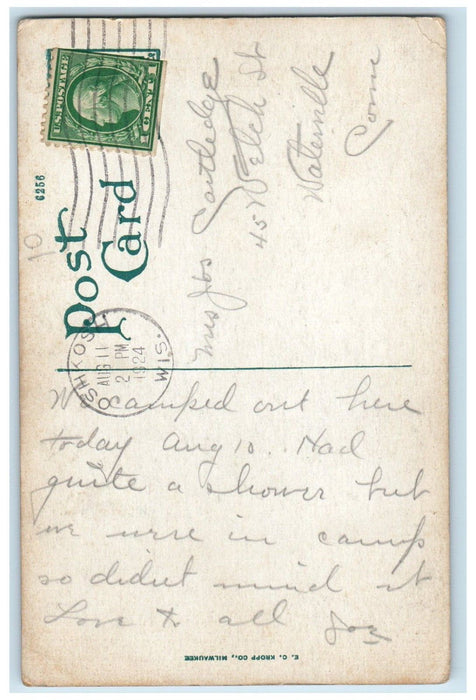 Post
Card
6256
10
U.S. POSTAGE
1 CENT 1
OSHKOSH
AUG 11
2 PM
1924
WIS.
Mrs Jos Cartledge
45 Welch St
Waterville
Conn
We camped out here
today Aug 10. Had
quite a shower but
we were in camp
so didnt mind it
Love to all Joz
E. C. KROPP CO., MILWAUKEE